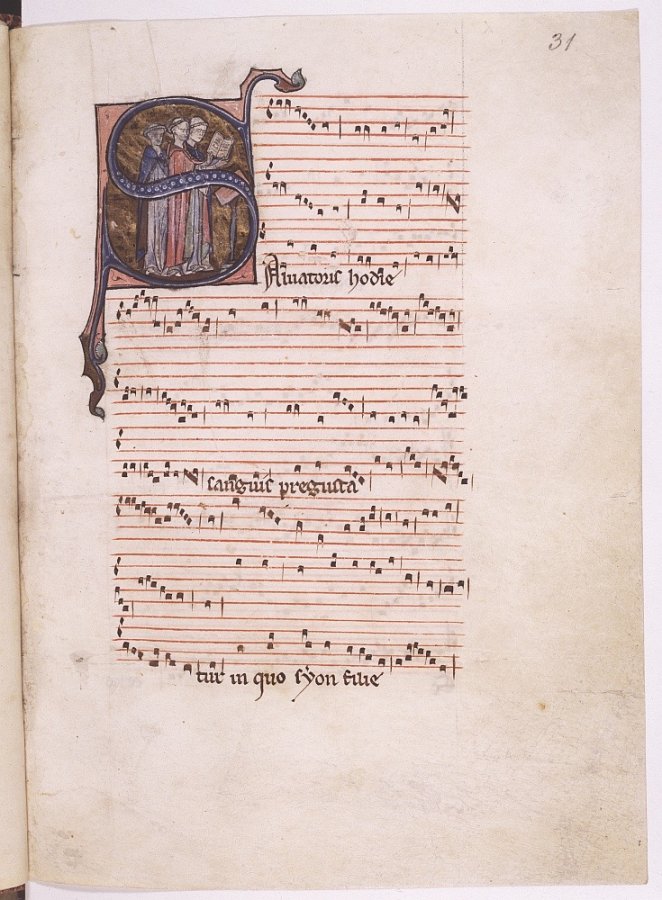 31
SAlvatoris hodie
sanguis pregusta
tur in quo syon filie